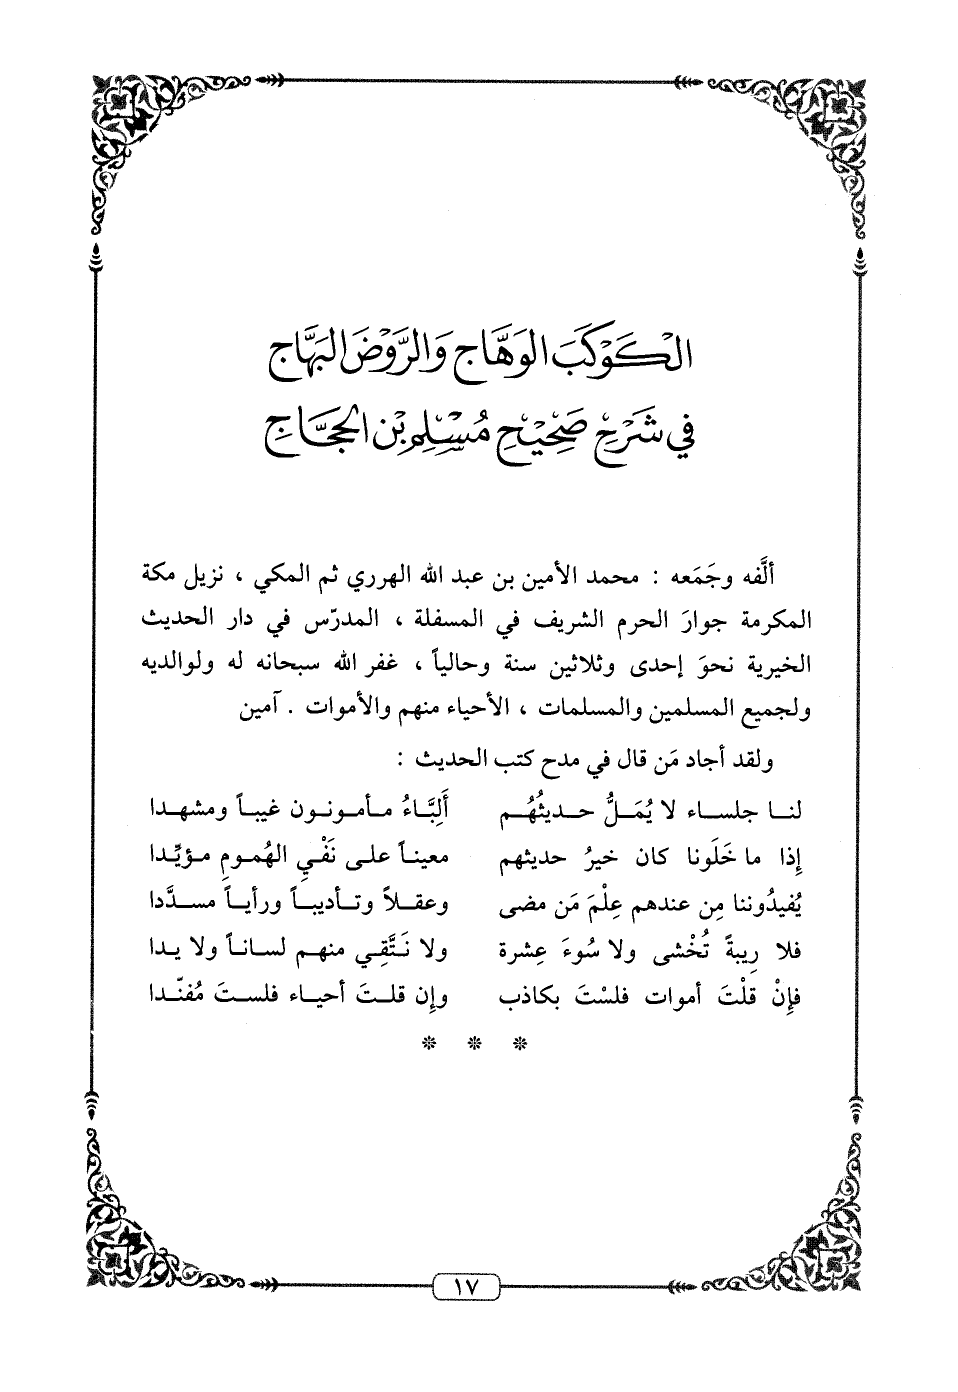 الكَوْكَبَ الوَهَّاج وَالرَّوْضَ البَهَّاج
في شَرْحِ صَحِيْحِ مُسْلِم بْنِ الحَجَّاجِ
ألَّفه وجَمَعه : محمد الأمين بن عبد الله الهرري ثم المكي ، نزيل مكة
المكرمة جوارَ الحرم الشريف في المسفلة ، المدرّس في دار الحديث
الخيرية نحوَ إحدى وثلاثين سنة وحالياً ، غفر الله سبحانه له ولوالديه
ولجميع المسلمين والمسلمات ، الأحياء منهم والأموات . آمين
ولقد أجاد مَن قال في مدح كتب الحديث :
لنـا جلسـاء لا يُمَـلُّ حـديثُهُـم أَلِبَّـاءُ مـأمـونـون غيبـاً ومشهـدا
إذا ما خَلَونا كان خيرُ حديثهم معينـاً علـى نَفْـيِ الهُمـومِ مـؤيِّـدا
يُفيدُوننا مِن عندهم عِلْمَ مَن مضى وعقـلاً وتـأديبـاً ورأيـاً مسـدَّدا
فلا رِيبةً تُخْشى ولا سُوءَ عِشرة ولا نَـتَّقِـي منهـم لسـانـاً ولا يـدا
فإنْ قلْتَ أموات فلسْتَ بكاذب وإن قلـتَ أحيـاء فلسـتَ مُفنّـدا
* * *
١٧